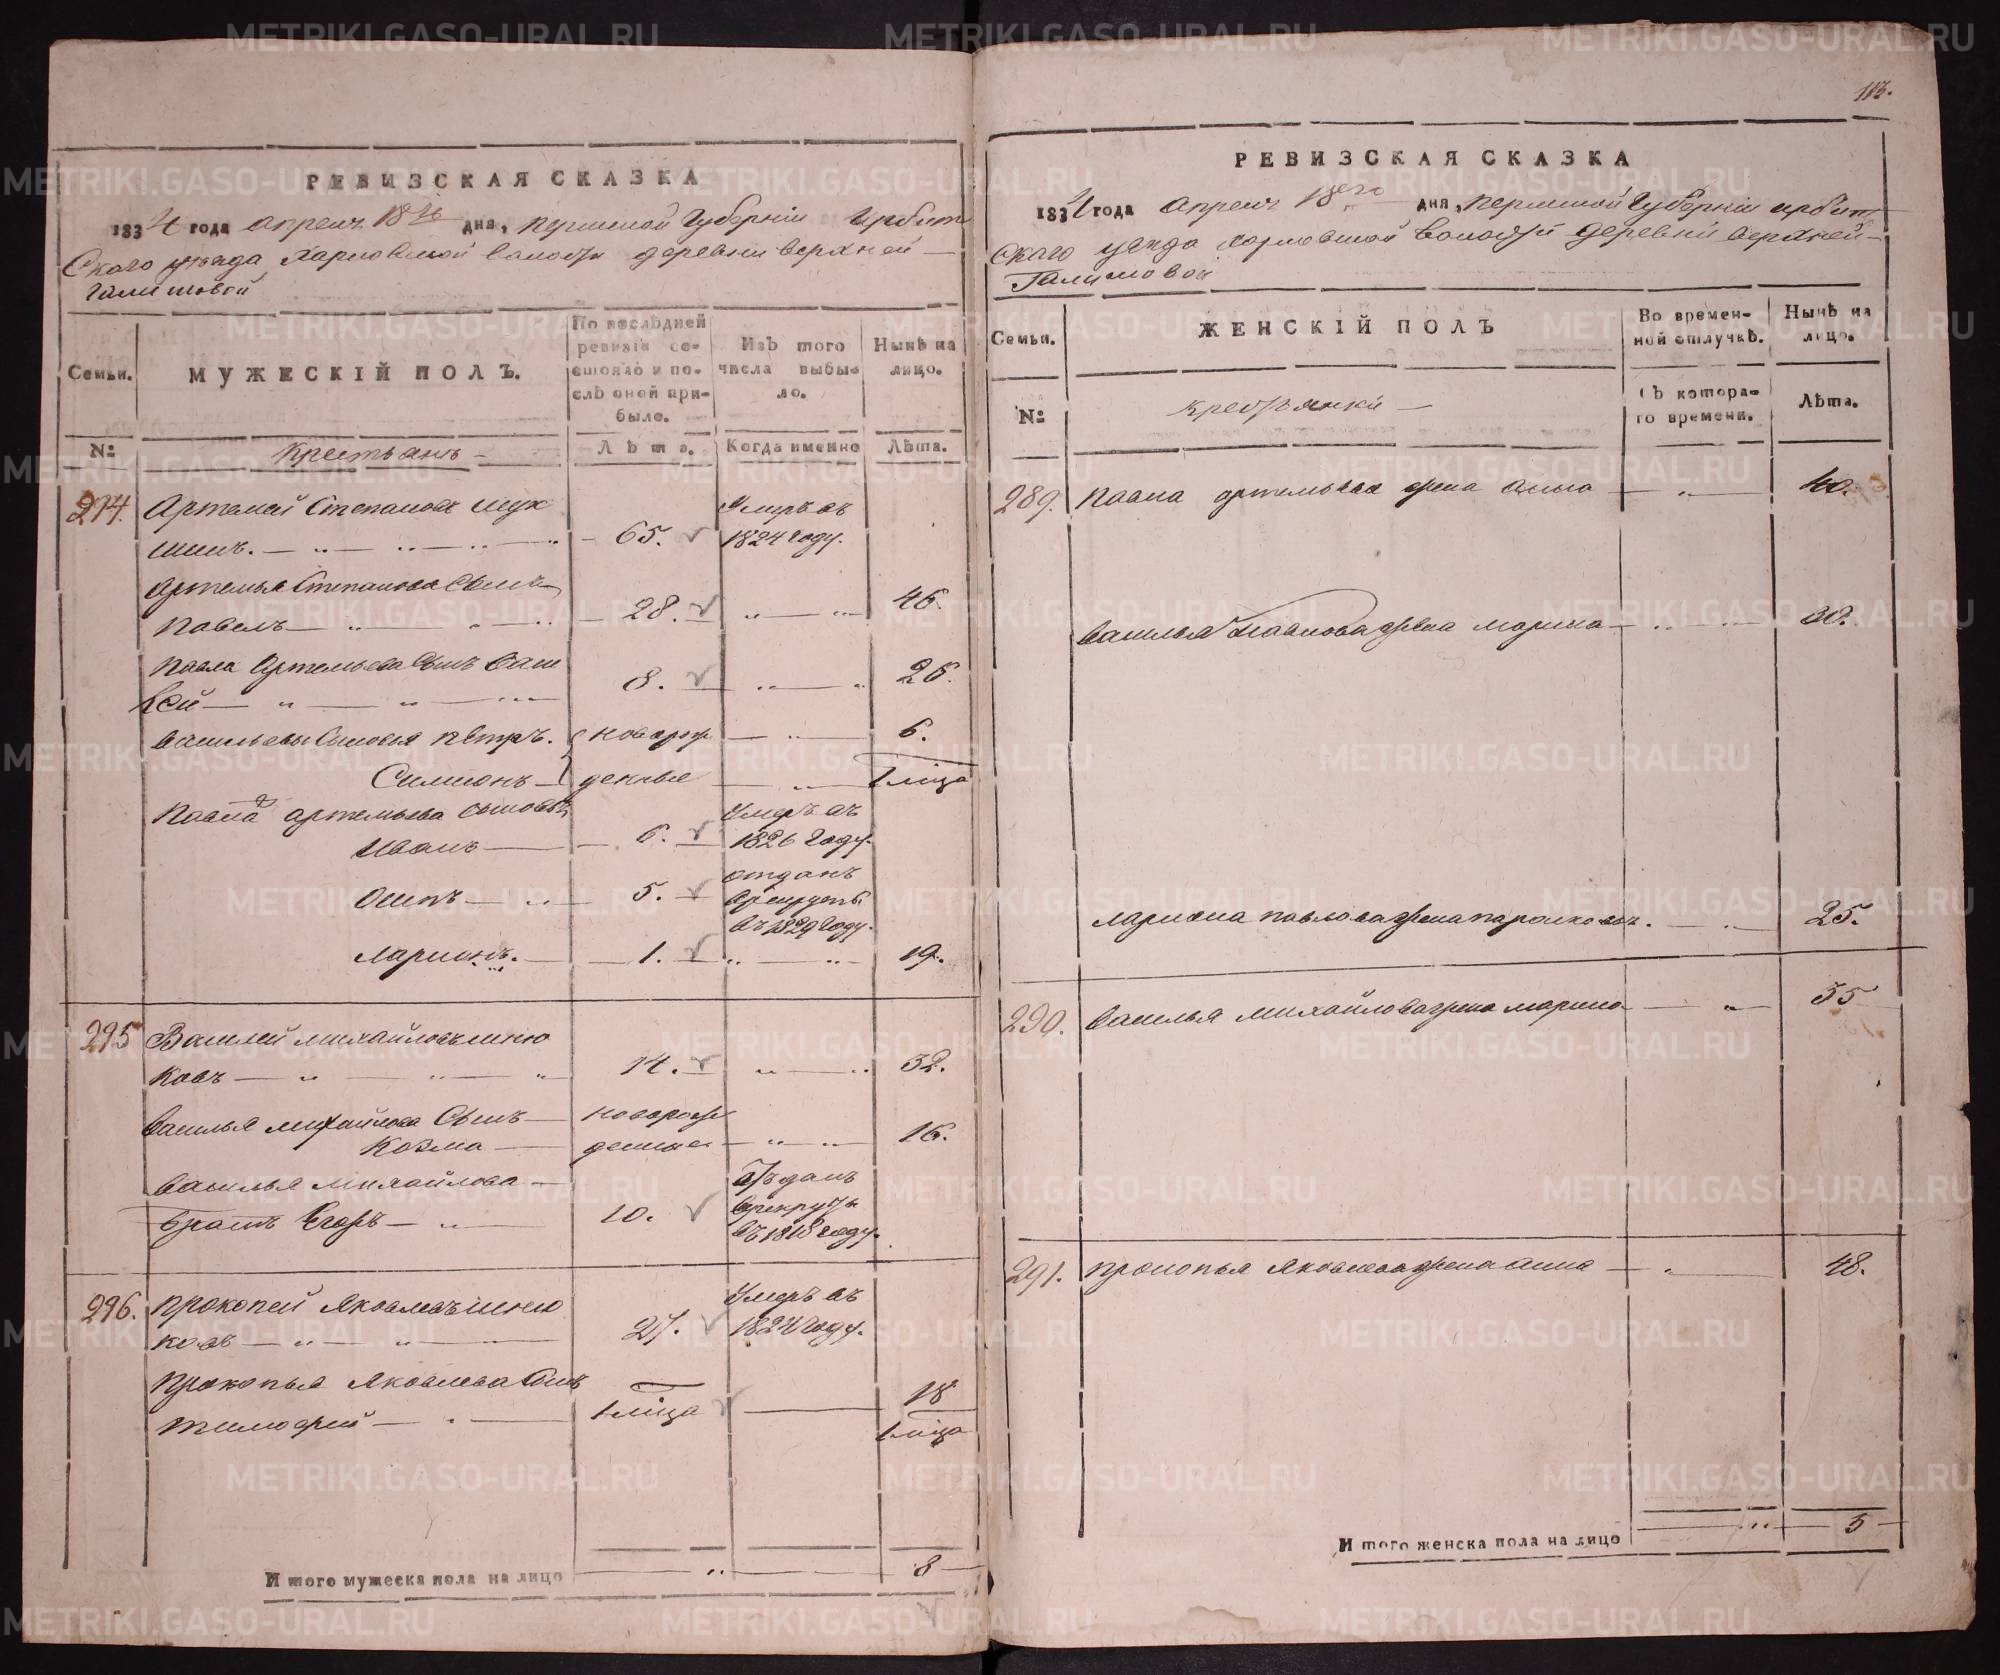 РЕВИЗСКАЯ СКАЗКА
1834 года апреля 18го дня, пермской Губернiи Ирбит
скаго уезда Харловской волости деревни верхней
Галишовой
Семьи.
МУЖЕСКIЙ ПОЛЪ.
По послѣдней ревизiи состояло и послѣ оной прибыло.
Изъ того числа выбыло.
Нынѣ на лицо.
№: Крестьянъ Лѣта. Когда именно Лѣта.
Артемей Степановъ
шинъ. 65. Умеръ въ 1824 году.
Артемья Степанова Сынъ
Павелъ 28. 46.
Павла Артемьева Сынъ Васи
лей 8. 26.
Васильевы Сыновья Петръ. новорож 6.
Симионъ денные 1 мiсца
Павла артемьева сыновья
Иванъ 6. Умеръ въ 1826 году.
Осипъ 5. отданъ в рекруты въ 1829 году.
Ларионъ. 1. 19.
295 Василей михайловъ
ковъ 14. 32.
Василья михайлова Сынъ новорож
Козма денные 16.
Василья михайлова
братъ Егоръ 10. отъданъ врекруты въ 1818 году.
296. Прокопей Яковлевъ
ковъ 27. Умеръ въ 1824 году.
Прокопья Яковлева Сынъ
тимофей 1 мiсца 18 1 мiсца
Итого мужеска пола на лицо 8
113.
РЕВИЗСКАЯ СКАЗКА
1834 года апреля 18го дня, пермской Губернiи ирбит
скаго уезда харловской волости деревни верхней
Галишовой
Семьи.
ЖЕНСКIЙ ПОЛЪ
Во временной отлучкѣ.
Нынѣ на лицо.
№: крестьянки Съ котораго времени. Лѣта.
289. Павла артемьева жена анна 40.
Василья Павлова жена марина 30.
Лариона павлова жена парасковья. 25.
290. Василья михайлова жена марина 35
291. Прокопья Яковлева жена анна 48.
Итого женска пола на лицо 5
METRIKI.GASO-URAL.RU